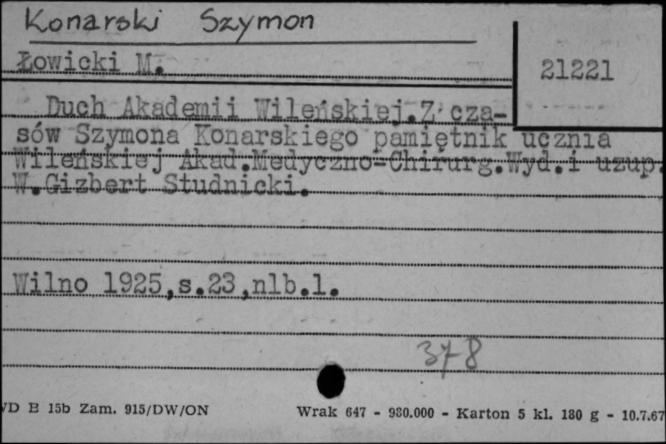 Konarski Szymon
Łowicki M.
21221
Duch Akademii Wileńskiej.Z cza-
sów Szymona Konarskiego pamiętnik ucznia
Wileńskiej Akad.Medyczno-Chirurg.Wyd.i uzup.
W.Gizbert Studnicki.
Wilno 1925,s.23,nlb.1.
378
VD E 15b Zam. 915/DW/ON
Wrak 647 - 980.000 - Karton 5 kl. 180 g - 10.7.67